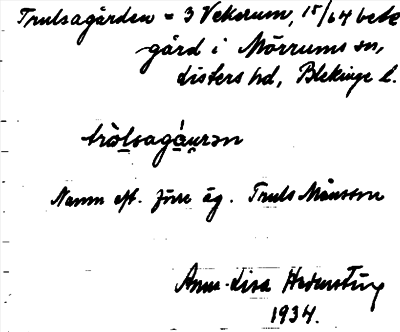 Trulsagården = 3 Vekerum, 15/64 
gård i Mörrums sn,
Listers hd, Blekinge l.
tròlsagá̱u̯rən
Namn eft. förre äg. Truls Månsson
Anna-Lisa
1934.